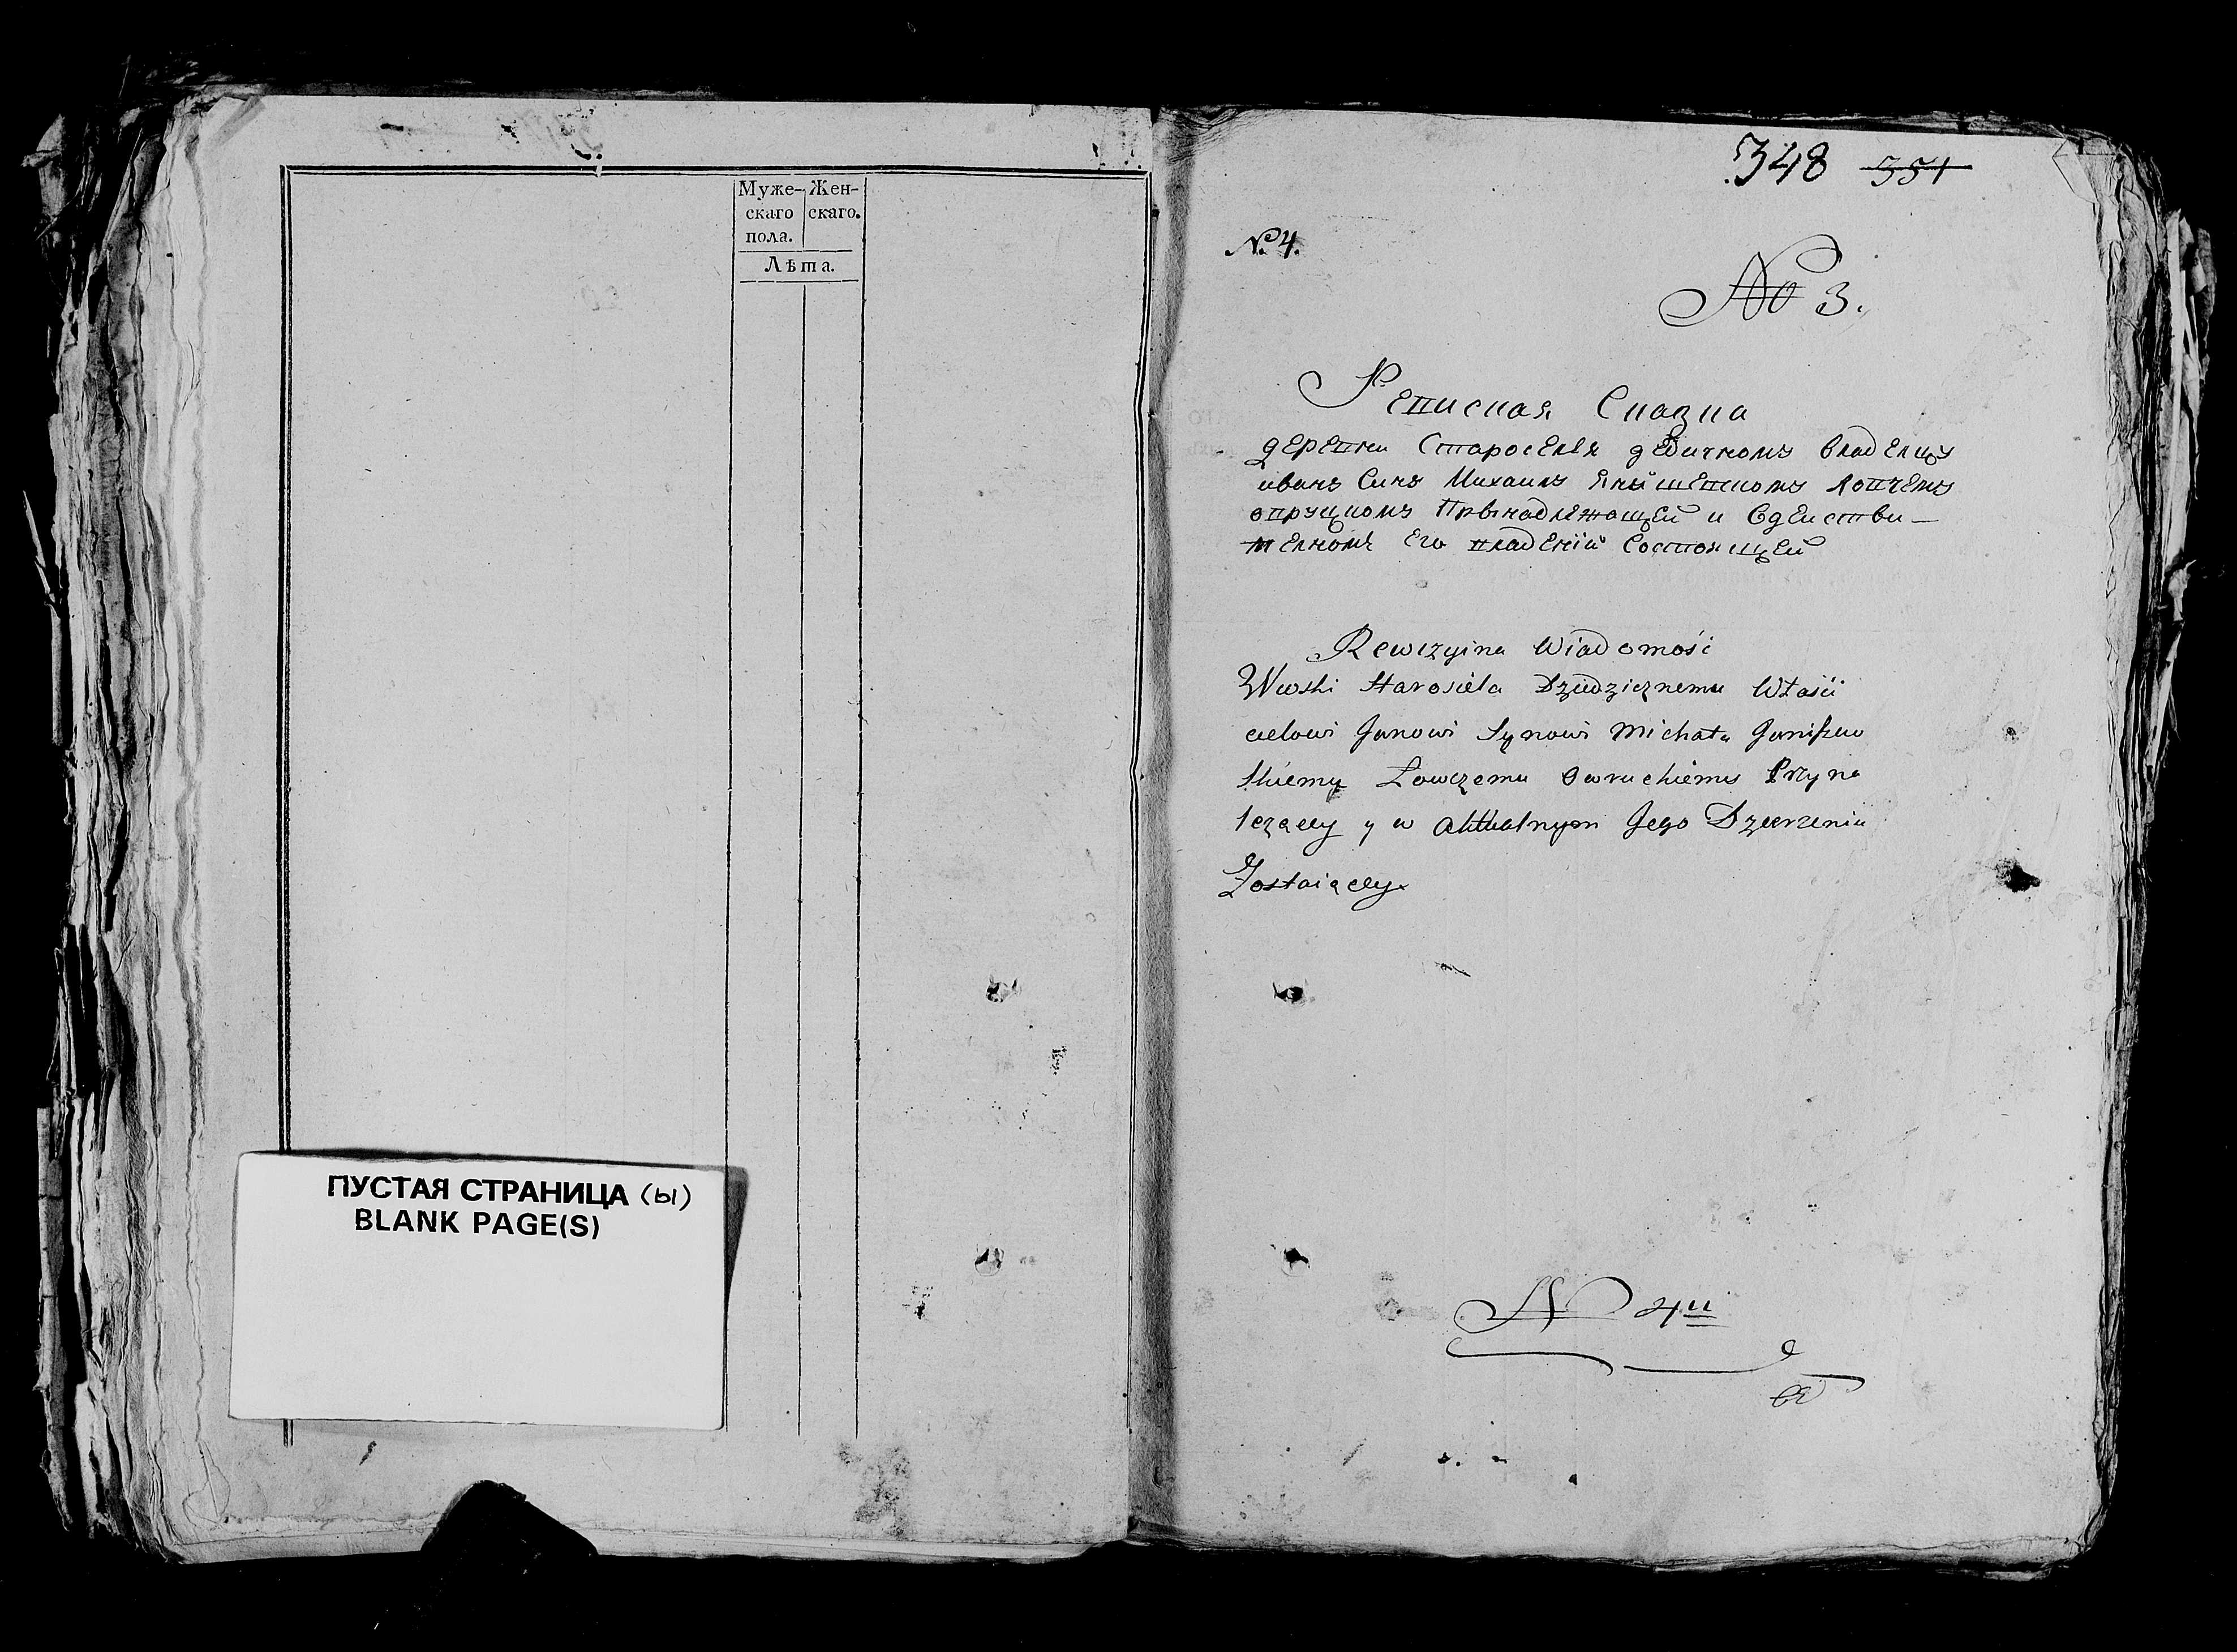 Муже- Жен-
скаго скаго.
пола.
Лѣта.
ПУСТАЯ СТРАНИЦА (ы)
BLANK PAGE(S)
348 351
№ 4.
№ 3.
Ревиская Сказка
деревни Староселя дедичномъ владелцу
иванъ Синъ Михаилъ Янышевскомъ Ловчемъ
овруцкомъ Прынадлежащей и вдействи-
телномъ Его владенїй Состоящей
Rewizyina Wiadomość
Wioski Starosiela Dziedzicznemu Właści
cielowi Janowi Synowi Michała Janiszew
skiemu Łowczemu Owruckiemu Przyna
leżącey y w Aktualnym Jego Dzierżeniu
Zostaiącey
№ 4й